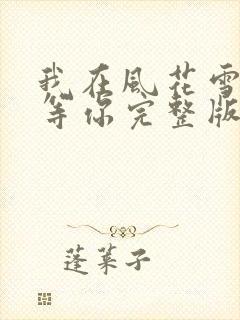 我在風花雪
等你完整版
蓬萊子